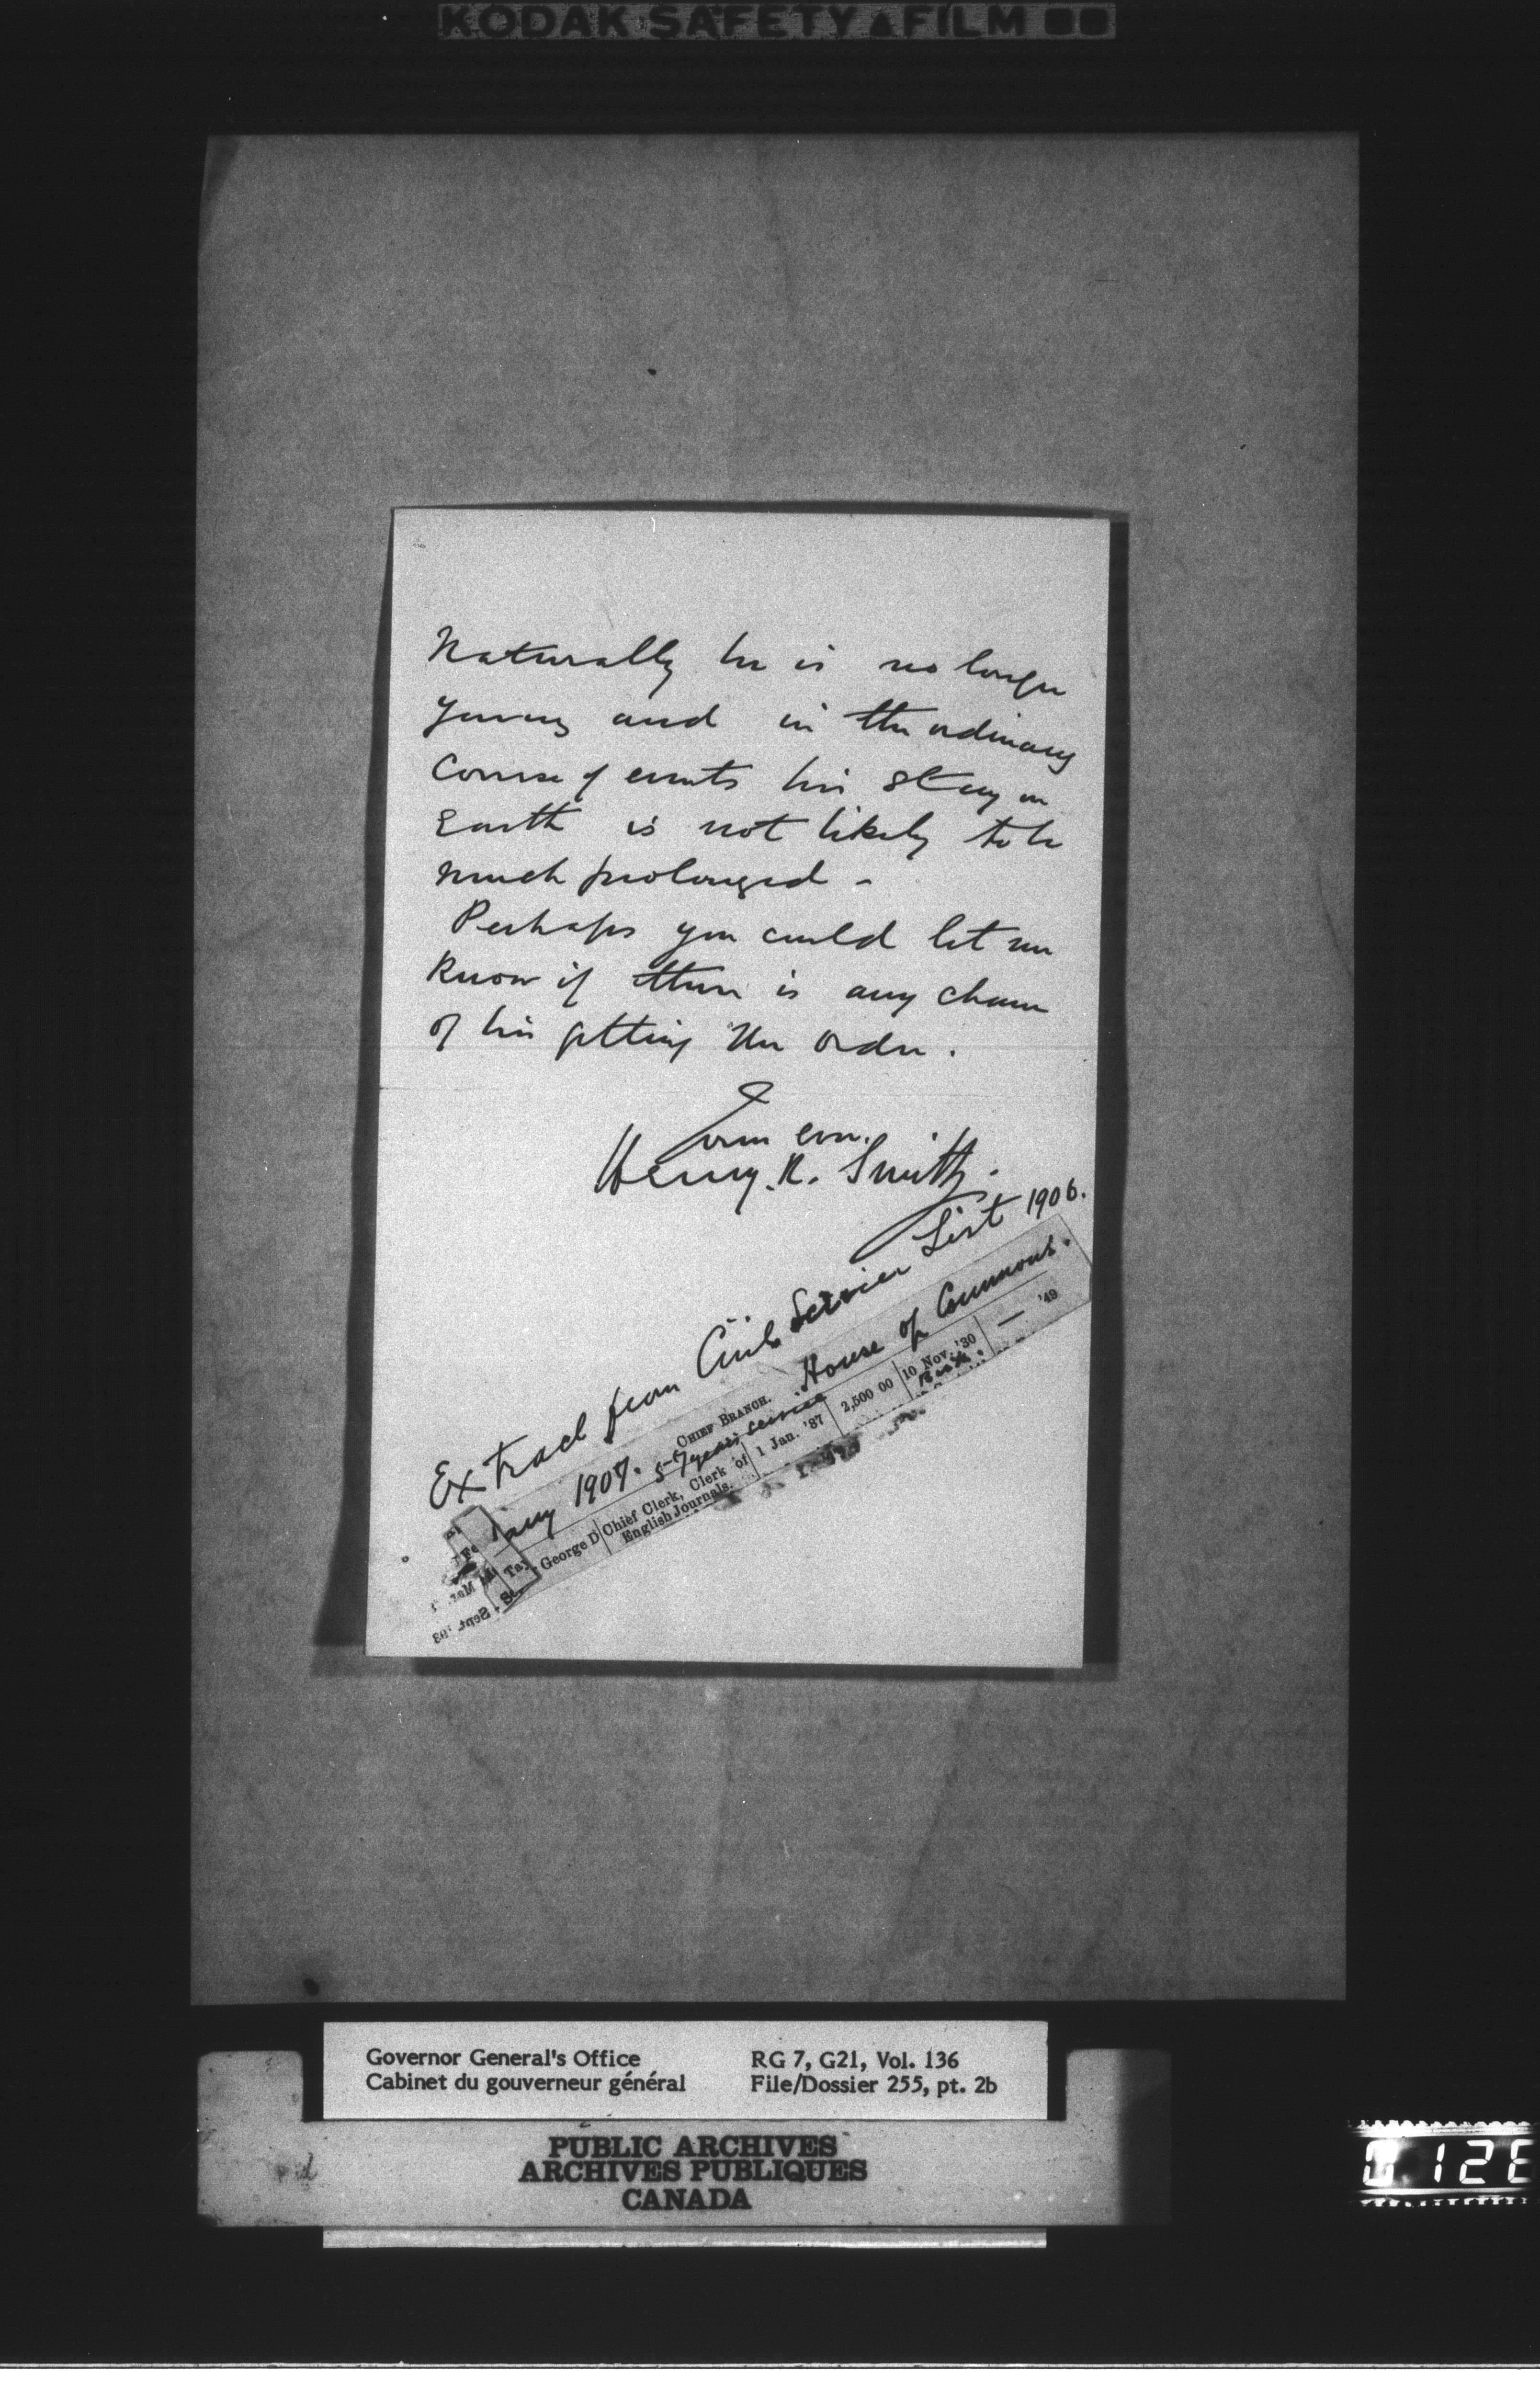 KODAK SAFETY FILM
Naturally he is no longer
young and in the ordinary
Course of events his stay on
Earth is not likely to be
much prolonged -
Perhaps you could let me
Know if there is any chance
of his getting the order.
Yours ever.
Henry. R. Smith.
Extract from Civil Service List 1906.
CHIEF BRANCH. House of Commons.
Jany 1907. 57 years service
George D
Chief Clerk, Clerk of
English Journals.
1 Jan. '87
2,500 00
10 Nov. '30
— '49
Sept. '93
Governor General's Office
Cabinet du gouverneur général
RG 7, G21, Vol. 136
File/Dossier 255, pt. 2b
PUBLIC ARCHIVES
ARCHIVES PUBLIQUES
CANADA